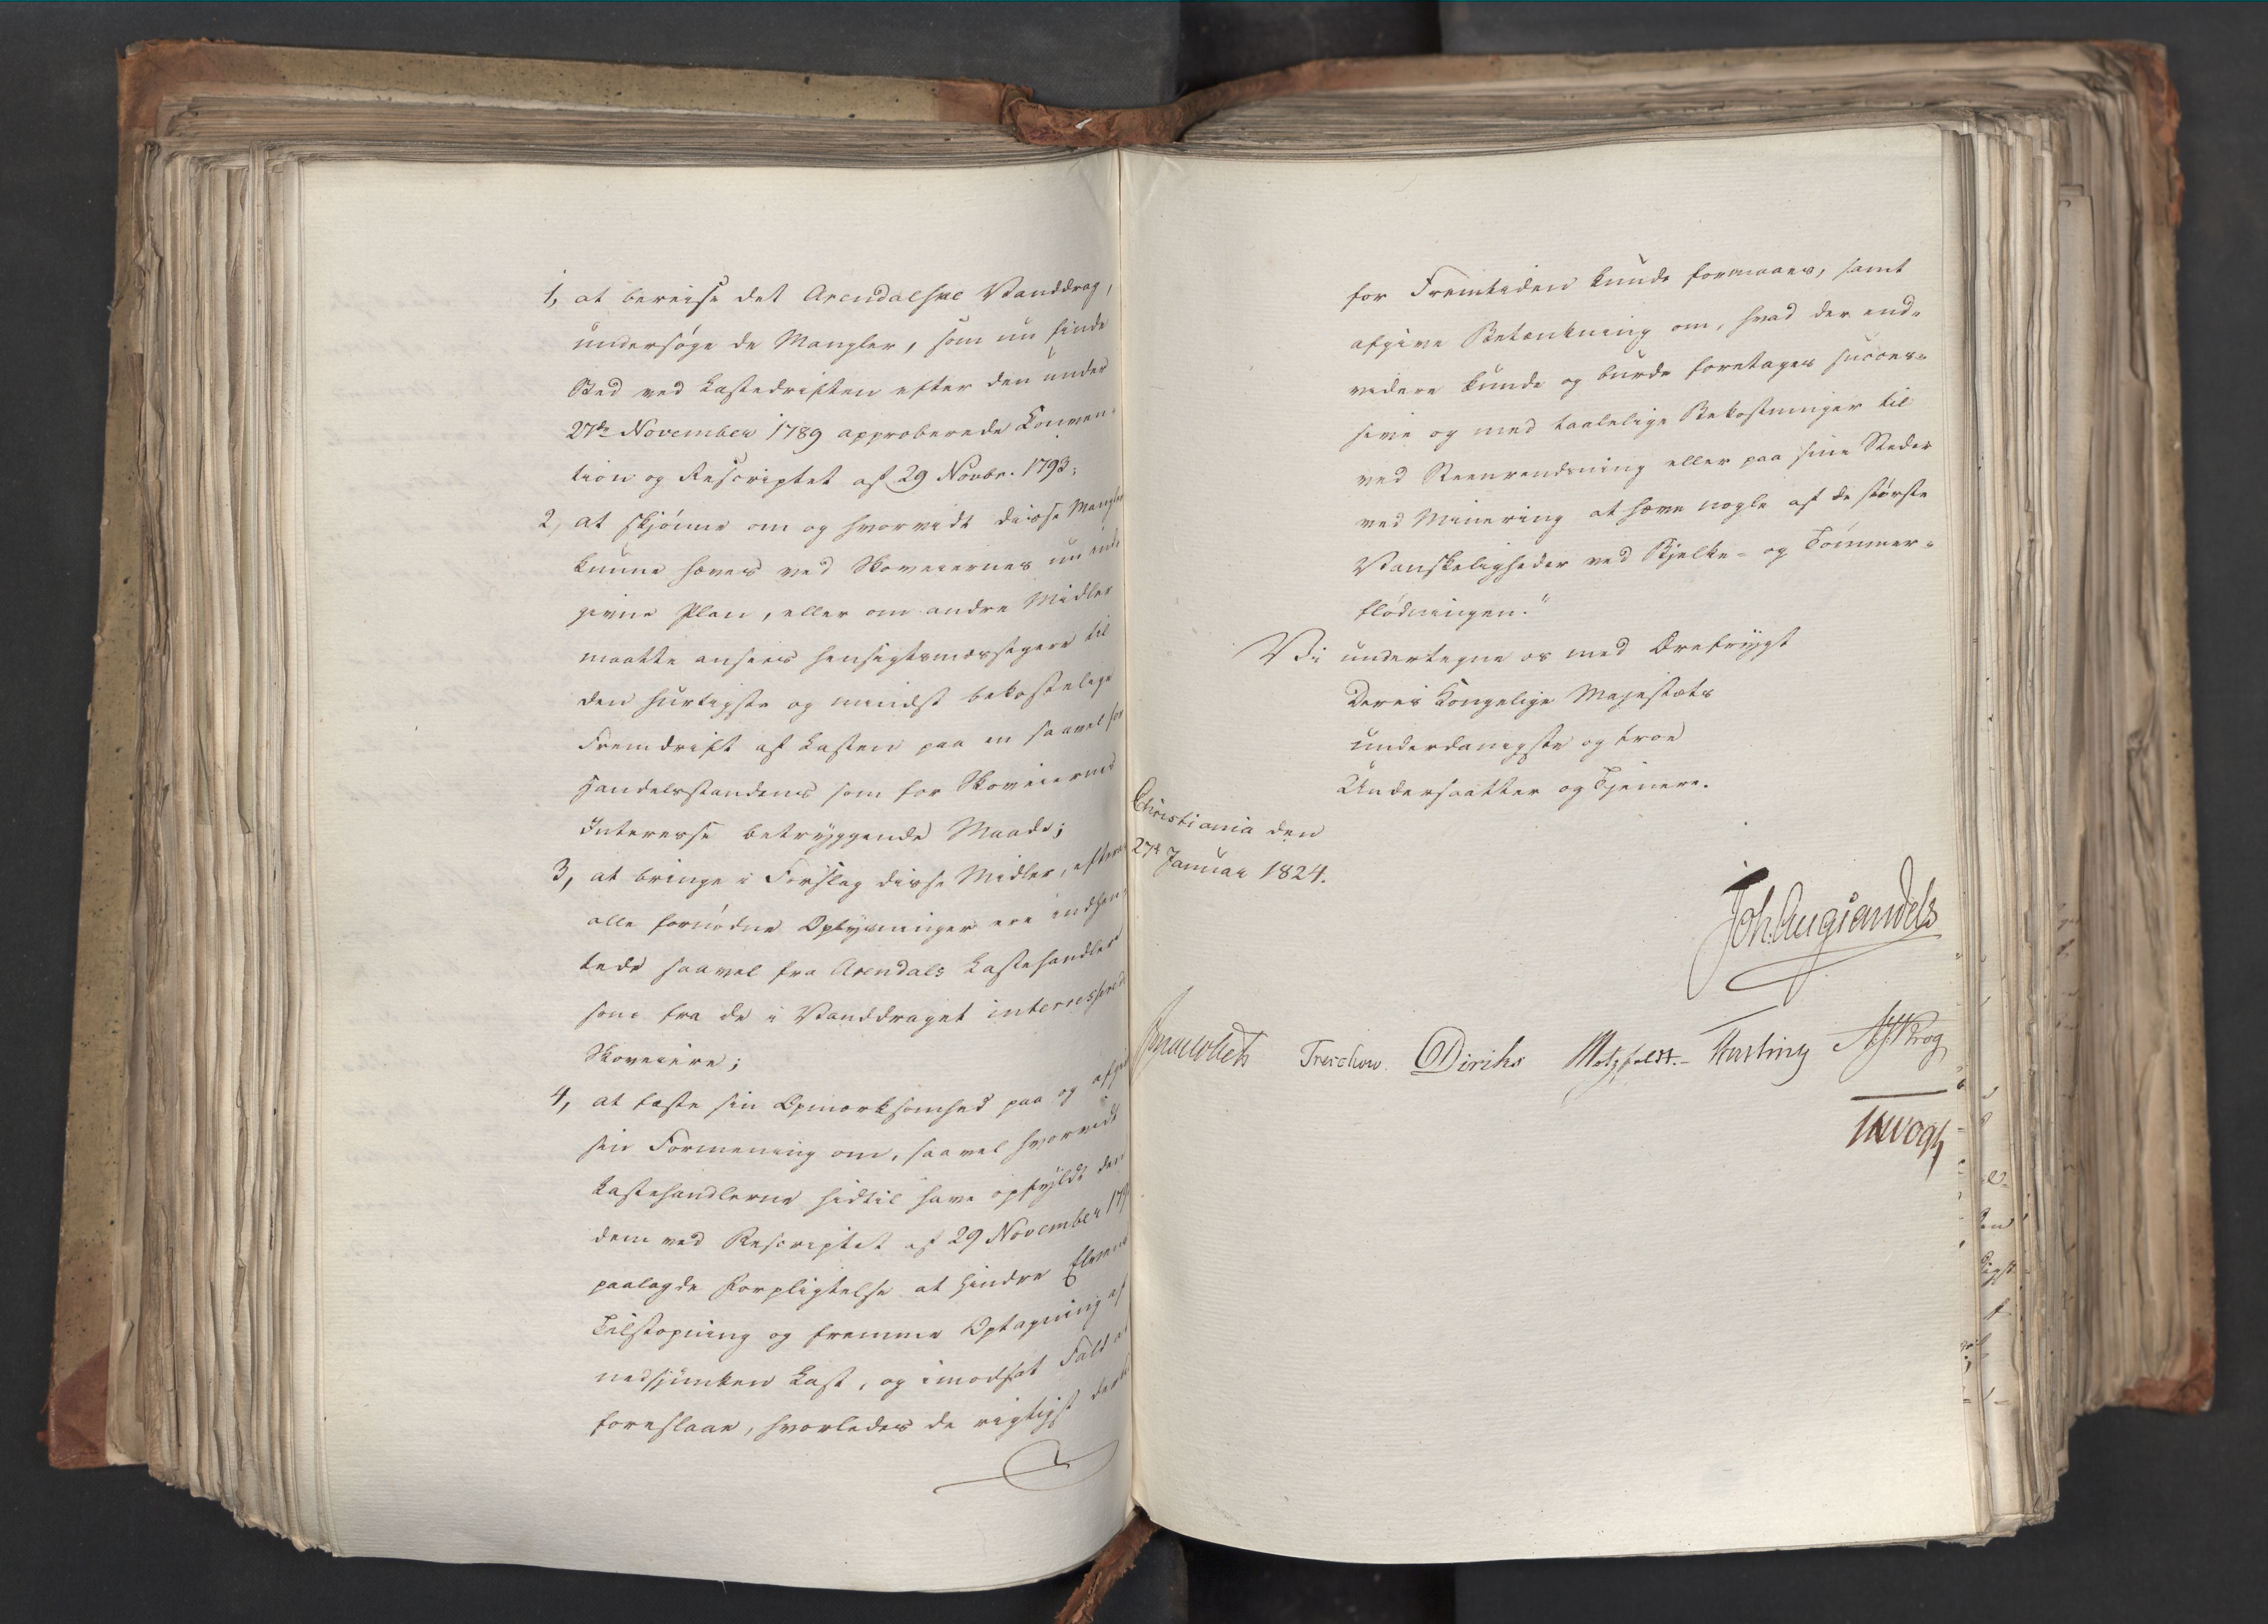 1, at bereise det Arendalske Vanddrag,
undersøge de Mangler, som nu finde
Sted ved Lastedriften efter den under
27de November 1789 approberede Conven-
tion og Rescriptet af 29 Novbr. 1793;
2, at skjønne om og hvorvidt disse Mangler
kunne hæves ved Skoveiernes nu ind-
givne Plan, eller om andre Midler
maatte ansees hensigtsmæssigere til
den hurtigste og mindst bekostelige
Fremdrift af Lasten paa en saavel for
Handelsstandens som for Skoveiernes
Interesse betryggende Maade;
3, at bringe i Forslag disse Midler, efterat
alle fornødne Oplysninger ere indhen-
tede saavel fra Arendals Lastehandlere
som fra de i Vanddraget interesserede
Skoveiere;
4, at fæste sin Opmærksomhed paa og afgive
sin Formening om, saavel hvorvidt
Lastehandlerne hidtil have opfyldt den
dem ved Rescriptet af 29 November 179
paalagde Forpligtelse at hindre Elvens
Tilstopning og fremme Optagning af
nedsjunken Last, og i modsat Fald at
foreslaae, hvorledes de rigtigst dertil
for Fremtiden kunde formaaes, samt
afgive Betænkning om, hvad der end-
videre kunde og burde foretages succes-
sive og med taalelige Bekostninger til
ved Reenrendsning eller paa sine Steder
ved Minering at hæve nogle af de største
Vanskeligheder ved Bjelke- og Tømmer-
flødningen."
Vi undertegne os med Ærefrygt
Deres Kongelige Majestæts
underdanigste og troe
Undersaatter og Tjenere.
Christiania den
27de Januar 1824.
Joh. Aug. Sandels
Treschow. Diriks Motzfeldt. Krog